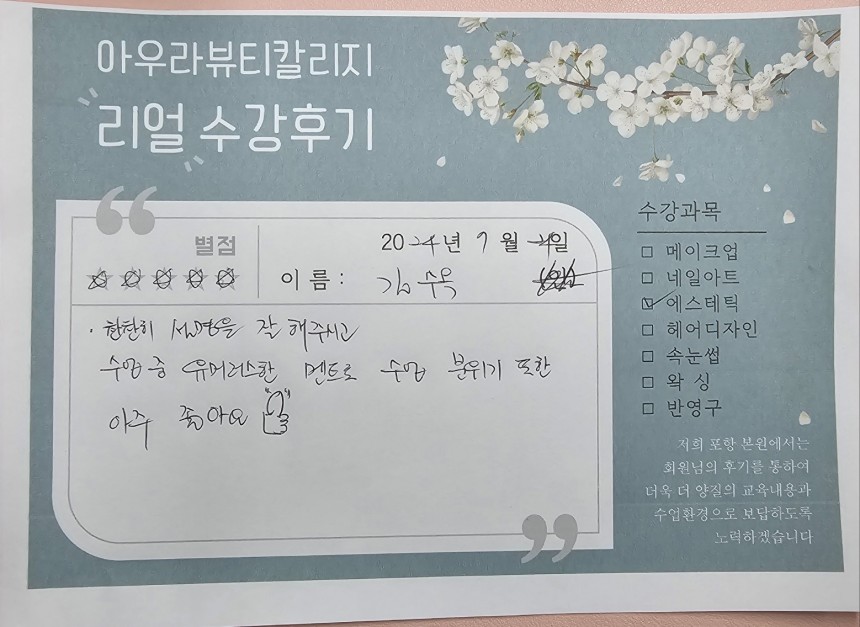 아우라뷰티칼리지
리얼 수강후기
별점
2024년 9월 일
이름: 김수옥
· 찬찬히 설명을 잘 해주시고
수업 중 유머러스한 멘트로 수업 분위기 또한
아주 좋아요
수강과목
□ 메이크업
□ 네일아트
☑ 에스테틱
□ 헤어디자인
□ 속눈썹
□ 왁싱
□ 반영구
저희 포항 본원에서는
회원님의 후기를 통하여
더욱 더 양질의 교육내용과
수업환경으로 보답하도록
노력하겠습니다